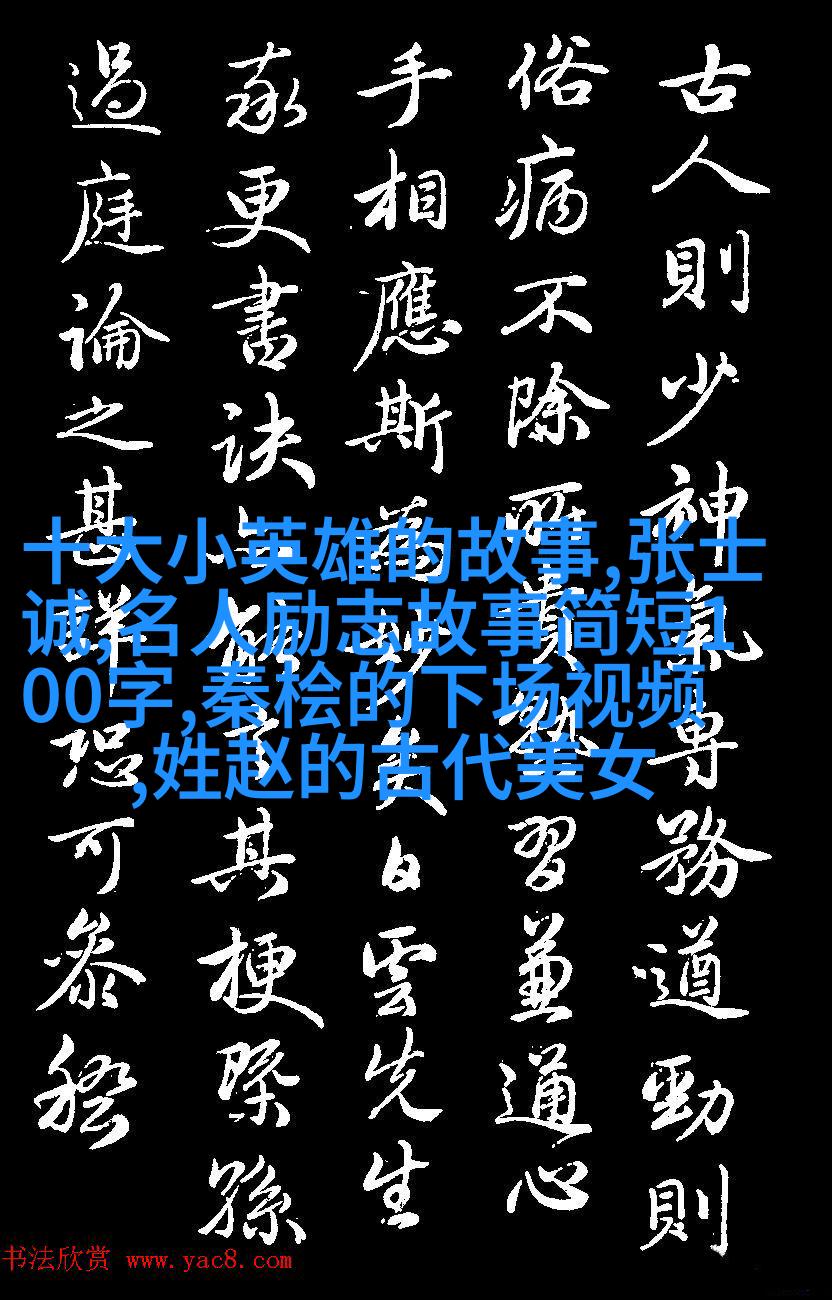 古人則少神氣專務遒勁則
俗病不除所貴熟習兼通心
手相應斯為妙矣白雲先生
率更書訣亦能言其梗槩孫
過庭論之甚詳可參稽
十大小英雄的故事,张士
诚,名人励志故事简短1
00字,秦桧的下场视频
,姓赵的古代美女
书法欣赏 www.yac8.com